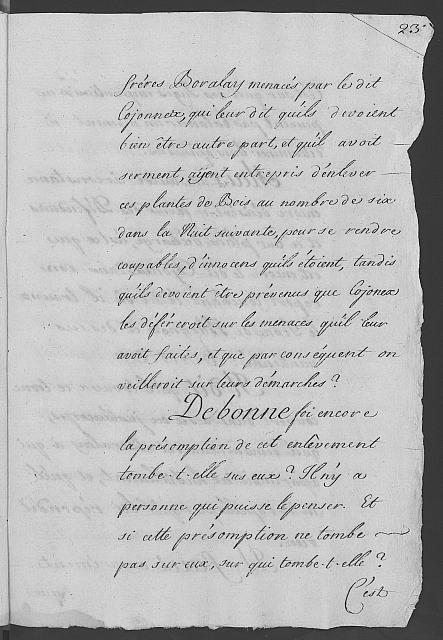 23
frères Boralay menacés par le dit
Cojonnex, qui leur dit qu'ils devoient
bien être autre part, et qu'il avoit
serment, ayent entrepris d'enlever
ces plantes de Bois au nombre de six
dans la Nuit suivante, pour se rendre
coupables, d'innocens qu'ils étoient, tandis
qu'ils devoient être prévenus que Cojonex
les déféreroit sur les menaces qu'il leur
avoit faites, et que par conséquent on
veilleroit sur leurs démarches?
De bonne foi encore
la présomption de cet enlèvement
tombe-t-elle sus eux? Il n'y a
personne qui puisse le penser. Et
si cette présomption ne tombe
pas sur eux, sur qui tombe-t-elle?
C'est